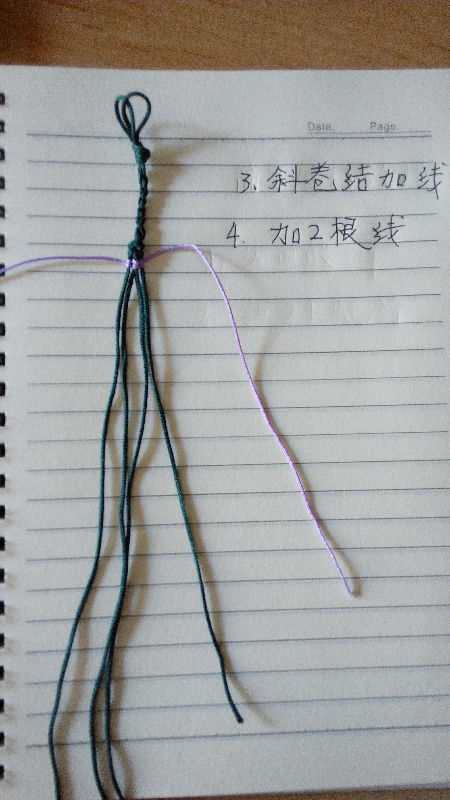 Date. Page.
3. 斜卷结加线
4. 加2根线